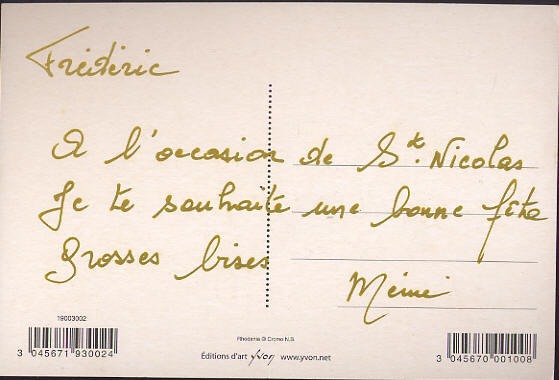 Frédéric
A l'occasion de St. Nicolas
Je te souhaite une bonne fête
Grosses bises
Mémé
19003002
3 045671 930024
Éditions d'art yvon www.yvon.net
3 045670 001008